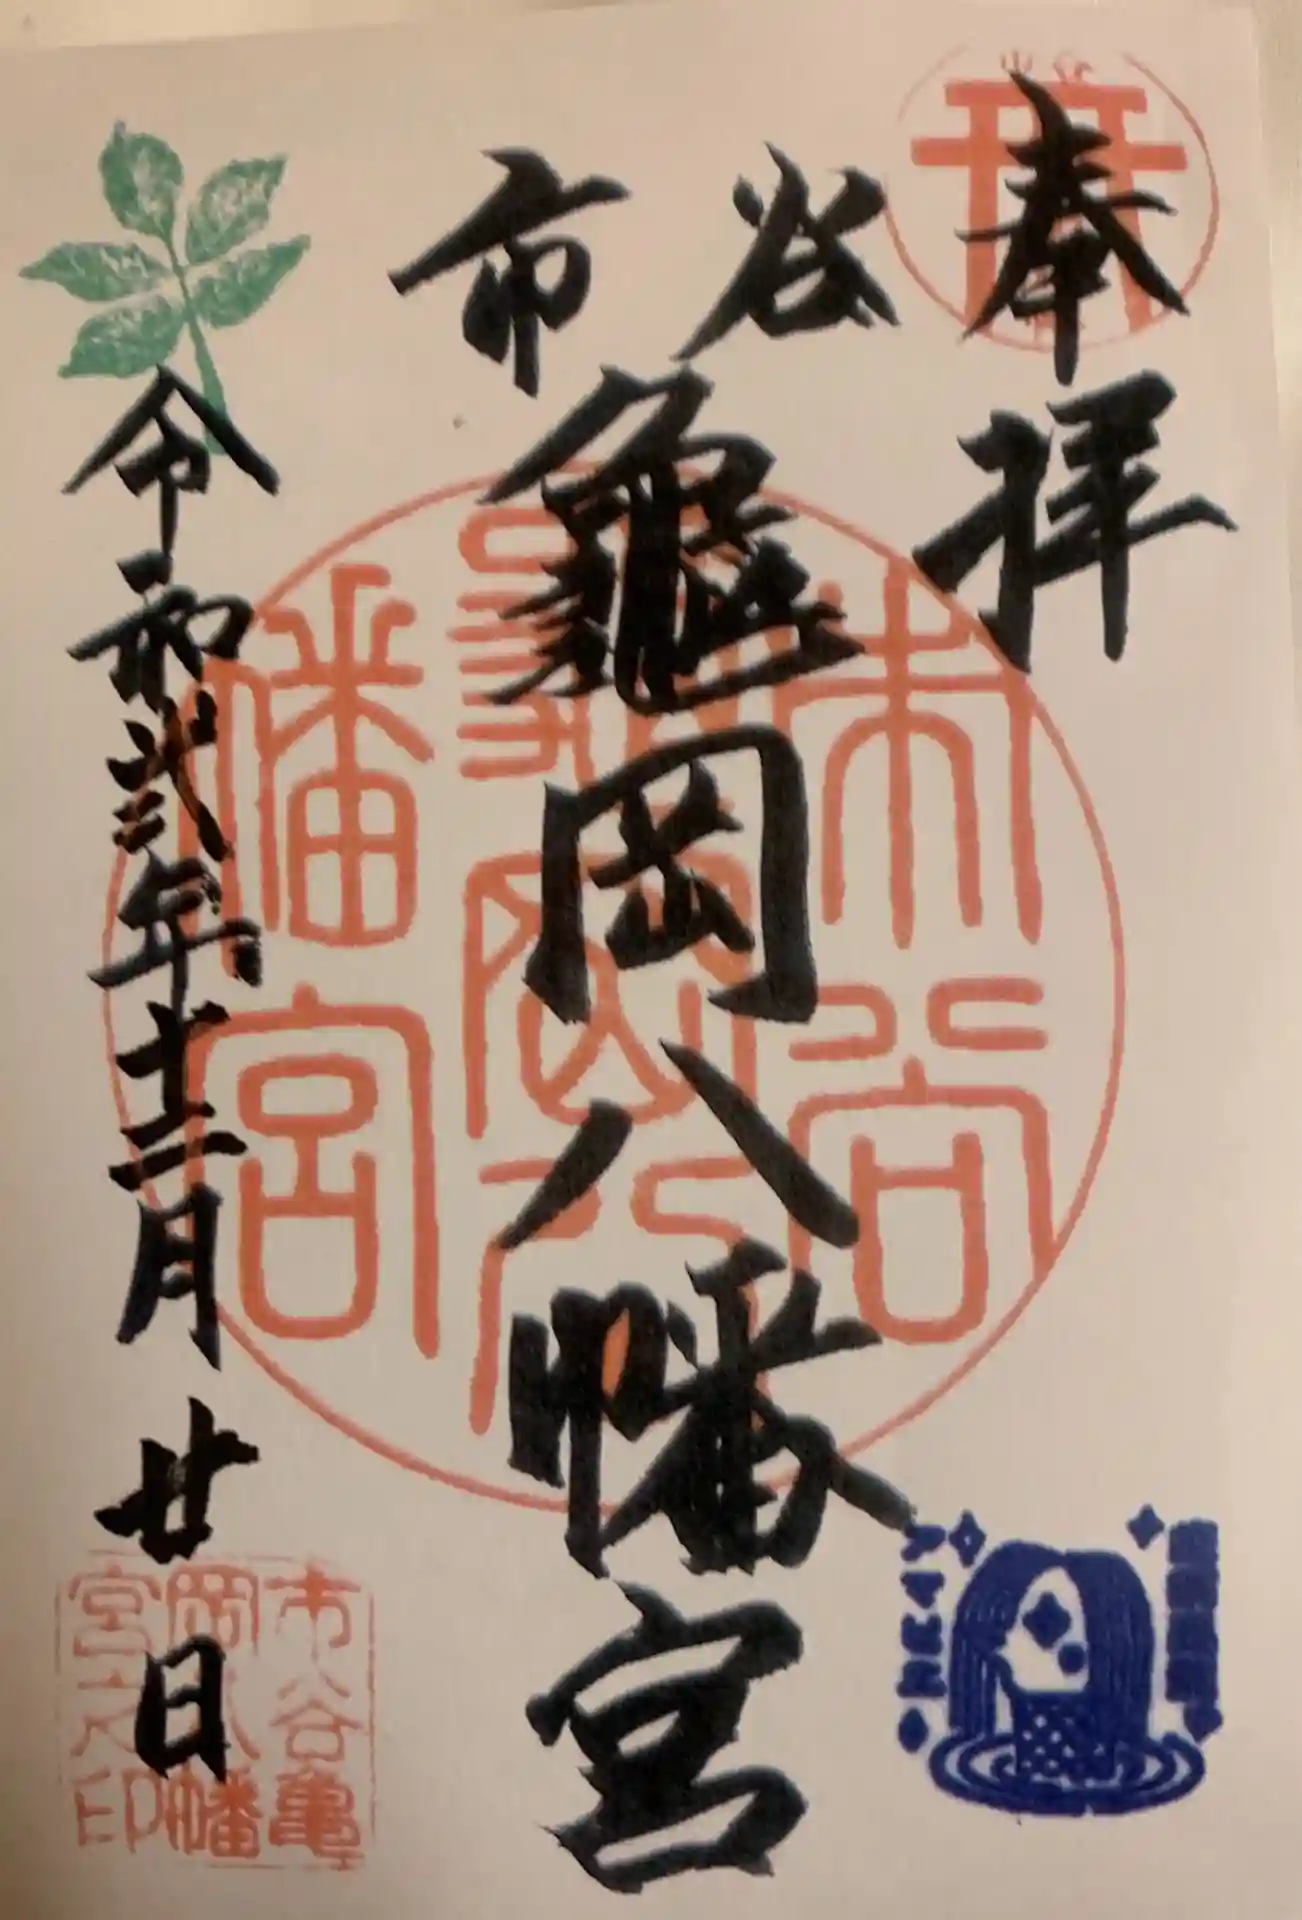 奉拝
市谷
亀岡八幡宮
令和弐年十二月廿日
市谷亀岡八幡宮
市谷亀
岡八幡
宮之印